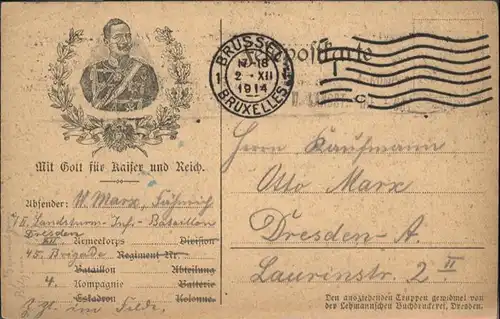 BRUSSEL
17-18
2 - XII
1914
BRUXELLES
1
Postkarte
Mit Gott für Kaiser und Reich.
Absender: W. Marx,
II. Landsturm-Inf.-Bataillon
Dresden
XII Armeekorps Division
45. Brigade Regiment Nr.
Bataillon Abteilung
4. Kompagnie Batterie
Eskadron Kolonne.
Z. Zt. im Felde.
Herrn Kaufmann
Otto Marx
Dresden-A.
Laurinstr. 2 II
Den ausziehenden Truppen gewidmet von
der Lehmannschen Buchdruckerei, Dresden.